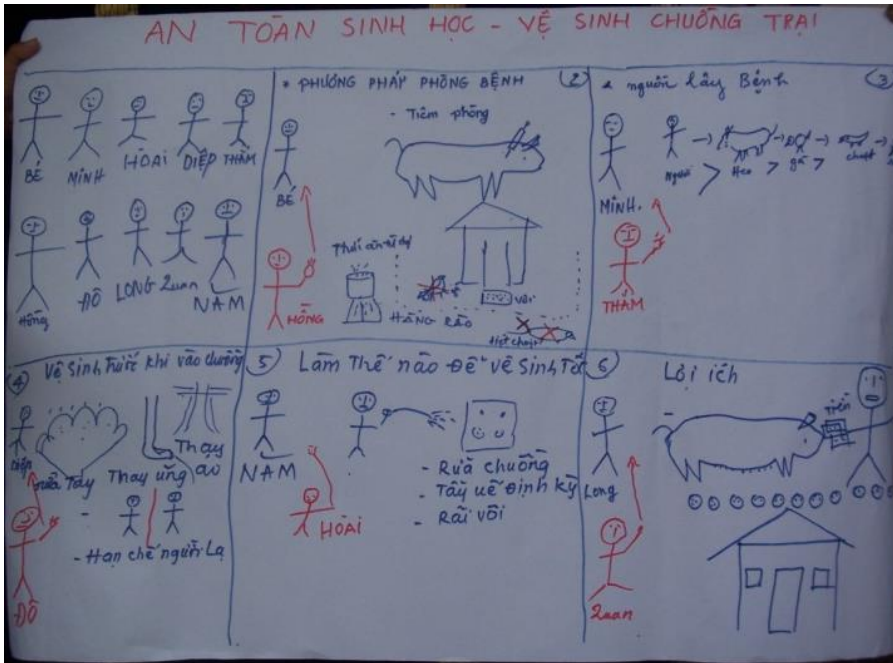 AN TOÀN SINH HỌC - VỆ SINH CHUỒNG TRẠI
BÉ MINH HOÀI DIỆP THẮM
Hồng ĐÔ LONG Quan NAM
* PHƯƠNG PHÁP PHÒNG BỆNH 2
- Tiêm phòng
BÉ
HỒNG
HÀNG RÀO
Vôi
nguồn lây Bệnh 3
người > Heo > gà > chuột
MINH.
THẮM
4 Vệ Sinh trước khi vào chuồng
Diệp
rửa Tay
Thay ủng
Thay áo
- Hạn chế người Lạ
ĐÔ
5 Làm Thế nào để vệ sinh Tốt
NAM
HOÀI
- Rửa chuồng
- Tẩy uế định kỳ
- Rãi vôi
6 Lợi ích
Tiền
Long
Quan